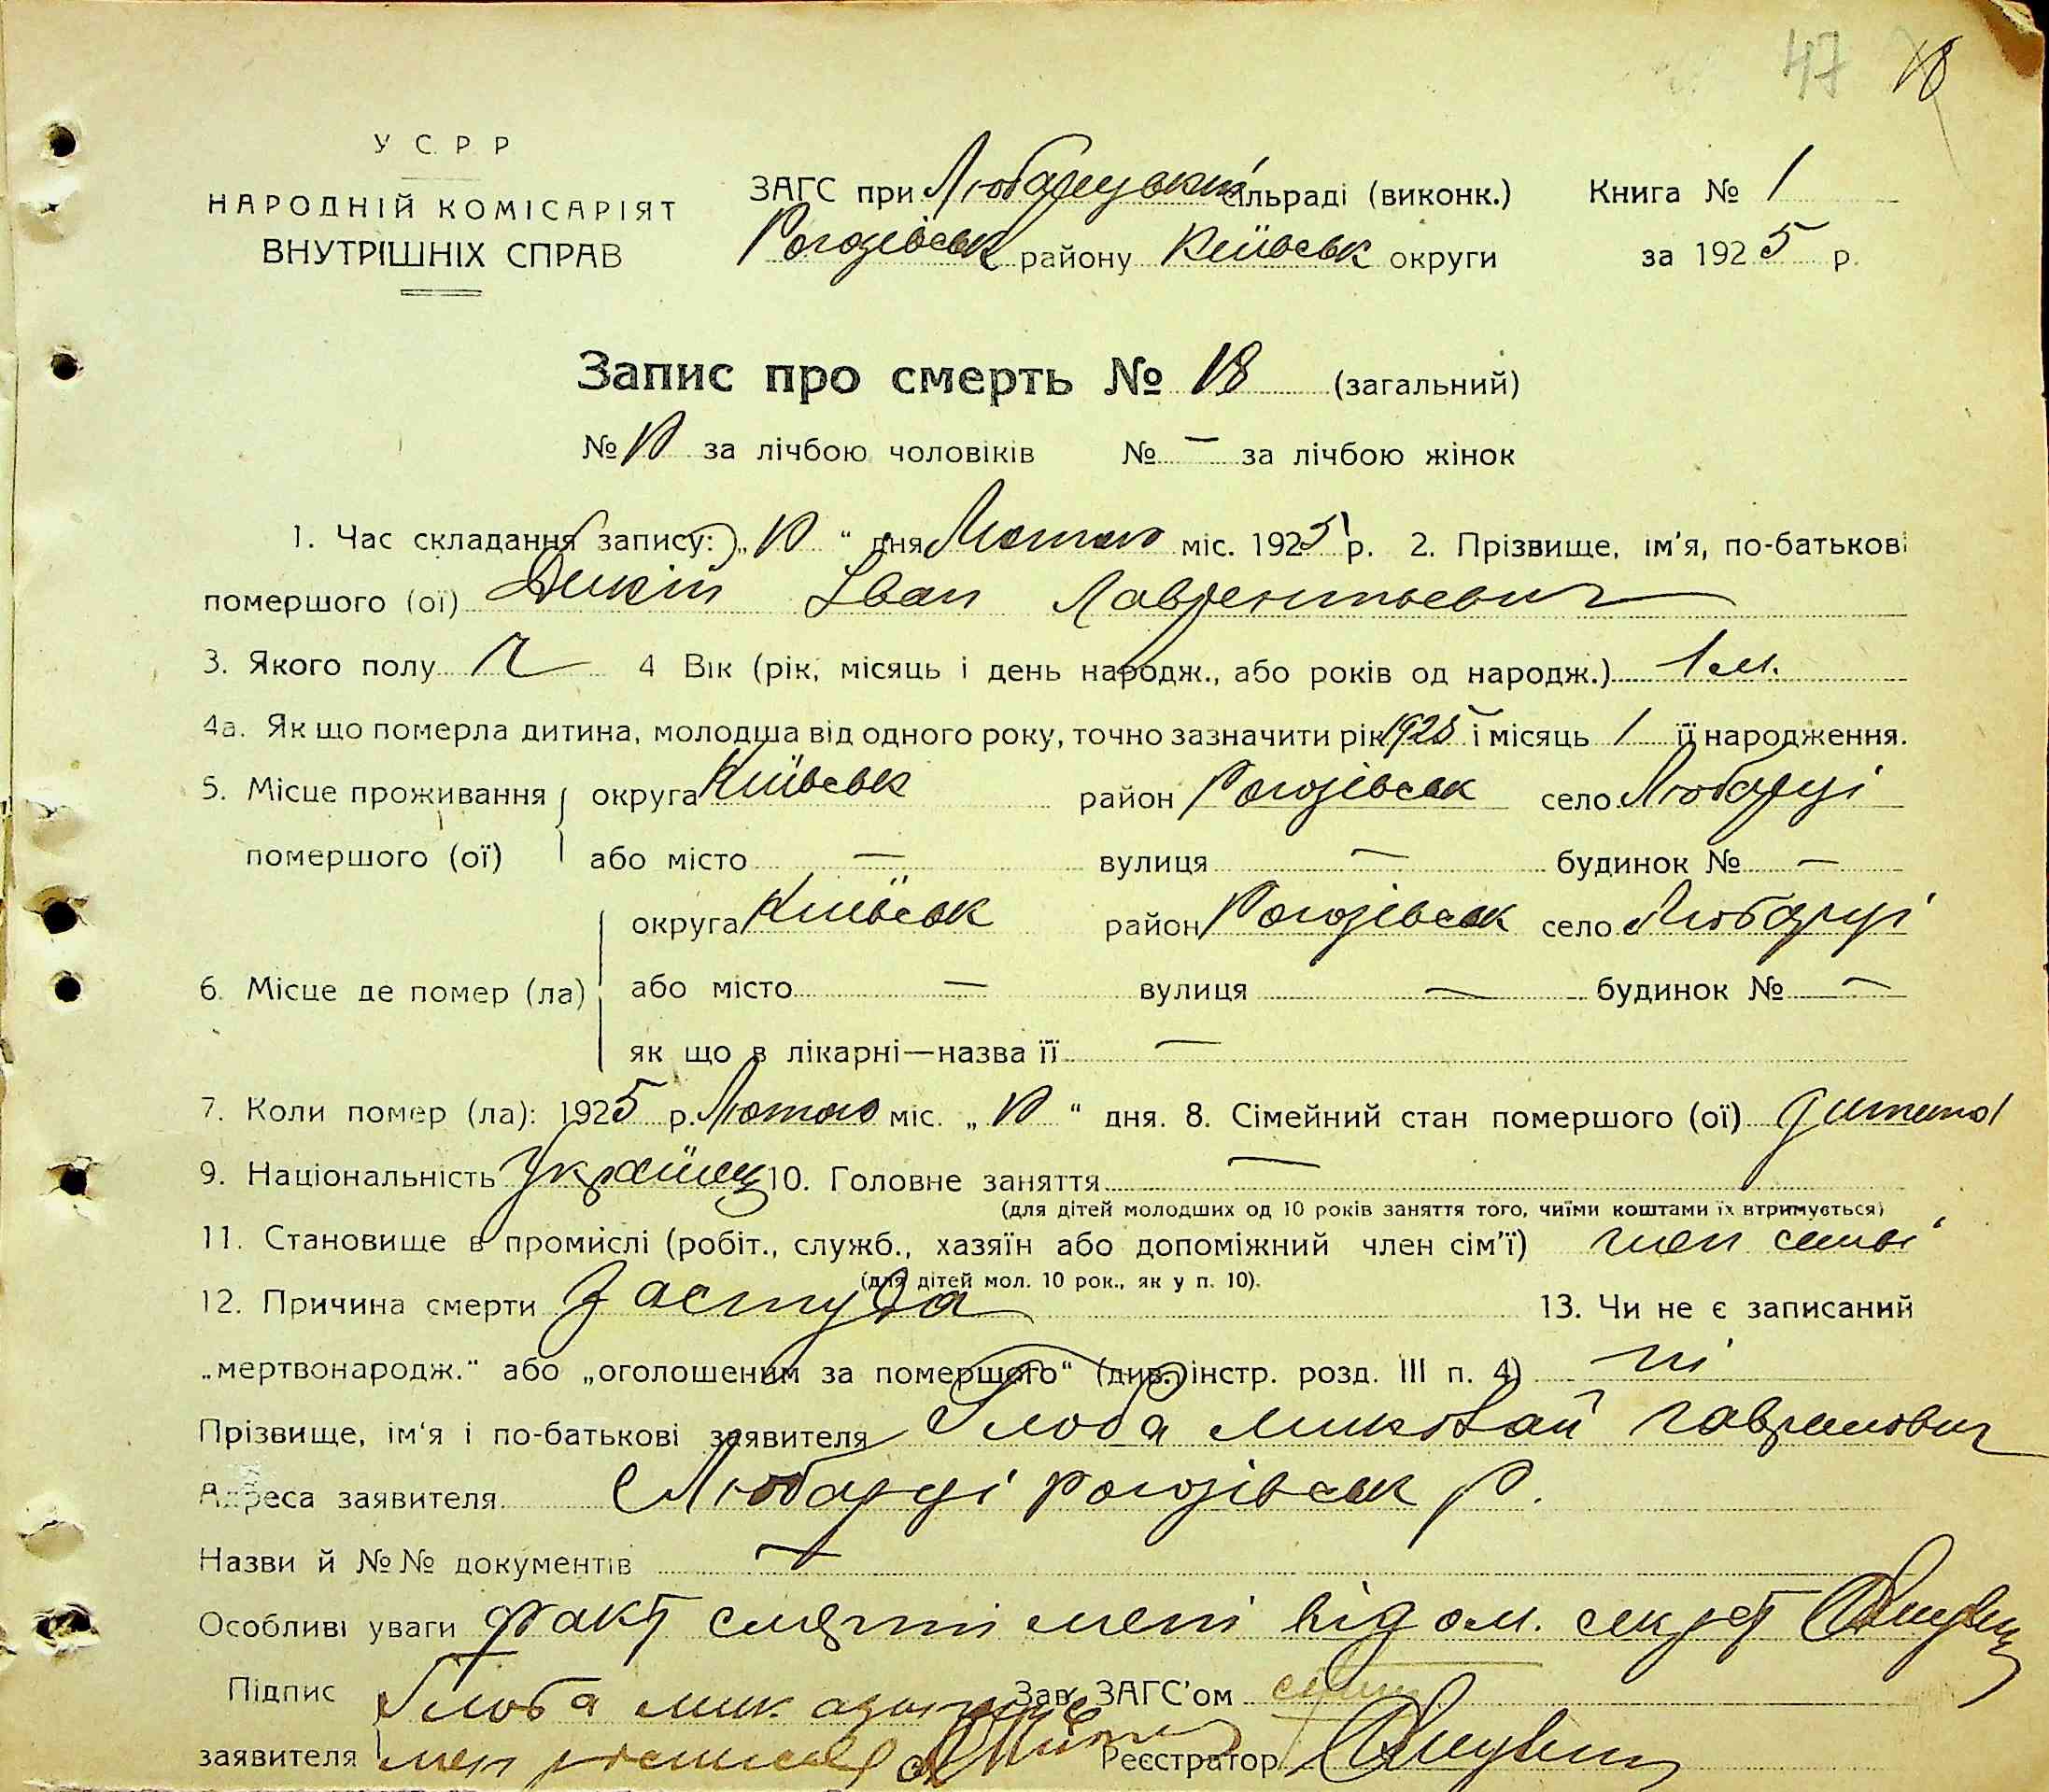 47 18
У С Р Р
НАРОДНІЙ КОМІСАРІЯТ
ВНУТРІШНІХ СПРАВ
ЗАГС при Любарецький сільраді (виконк.)
Рогозівськ району Київськ округи
Книга № 1
за 1925 р.
Запис про смерть № 18 (загальний)
№ за лічбою чоловіків № — за лічбою жінок
1. Час складання запису: „ “ дня Лютого міс. 1925 р. 2. Прізвище, ім'я, по-батькові
помершого (ої) Дикій Іван Лаврентьевич
3. Якого полу ч 4 Вік (рік, місяць і день народж., або років од народж.) 1 м.
4а. Як що померла дитина, молодша від одного року, точно зазначити рік 1925 і місяць 1 її народження.
5. Місце проживання округа Київськ район Рогозівськ село Любарці
помершого (ої) або місто — вулиця — будинок № —
округа Київськ район Рогозівськ село Любарці
6. Місце де помер (ла) або місто — вулиця — будинок № —
як що в лікарні—назва її —
7. Коли помер (ла): 1925 р. Лютого міс. „ “ дня. 8. Сімейний стан помершого (ої) дитина
9. Національність Українец 10. Головне заняття —
(для дітей молодших од 10 років заняття того, чиїми коштами їх втримується)
11. Становище в промислі (робіт., служб., хазяїн або допоміжний член сім'ї) член семьї
(для дітей мол. 10 рок., як у п. 10).
12. Причина смерти Застуда 13. Чи не є записаний
„мертвонародж.“ або „оголошеним за помершого“ (див. інстр. розд. III п. 4) ні
Прізвище, ім'я і по-батькові заявителя Глоба Миколай Гаврилович
Адреса заявителя с Любарці Рогозівськ р.
Назви й №№ документів —
Особливі уваги факт смерти мені відом. секрет
Підпис Глоба Мик. Зав. ЗАГС'ом
заявителя Реєстратор